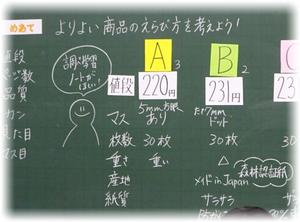 めあて よりよい商品のえらび方を考えよう!
値段
ページ数
品質
見た目
マス目
調べ学習
ノートがほしい!
A 3
B 2
C
値段 220円 231円 23
マス 5mm方眼 あり たて7mm ドット
枚数 30枚 30枚 30
重さ 重い △
産地 メイドin Japan
森林認証紙
紙質 サラサラ サラ